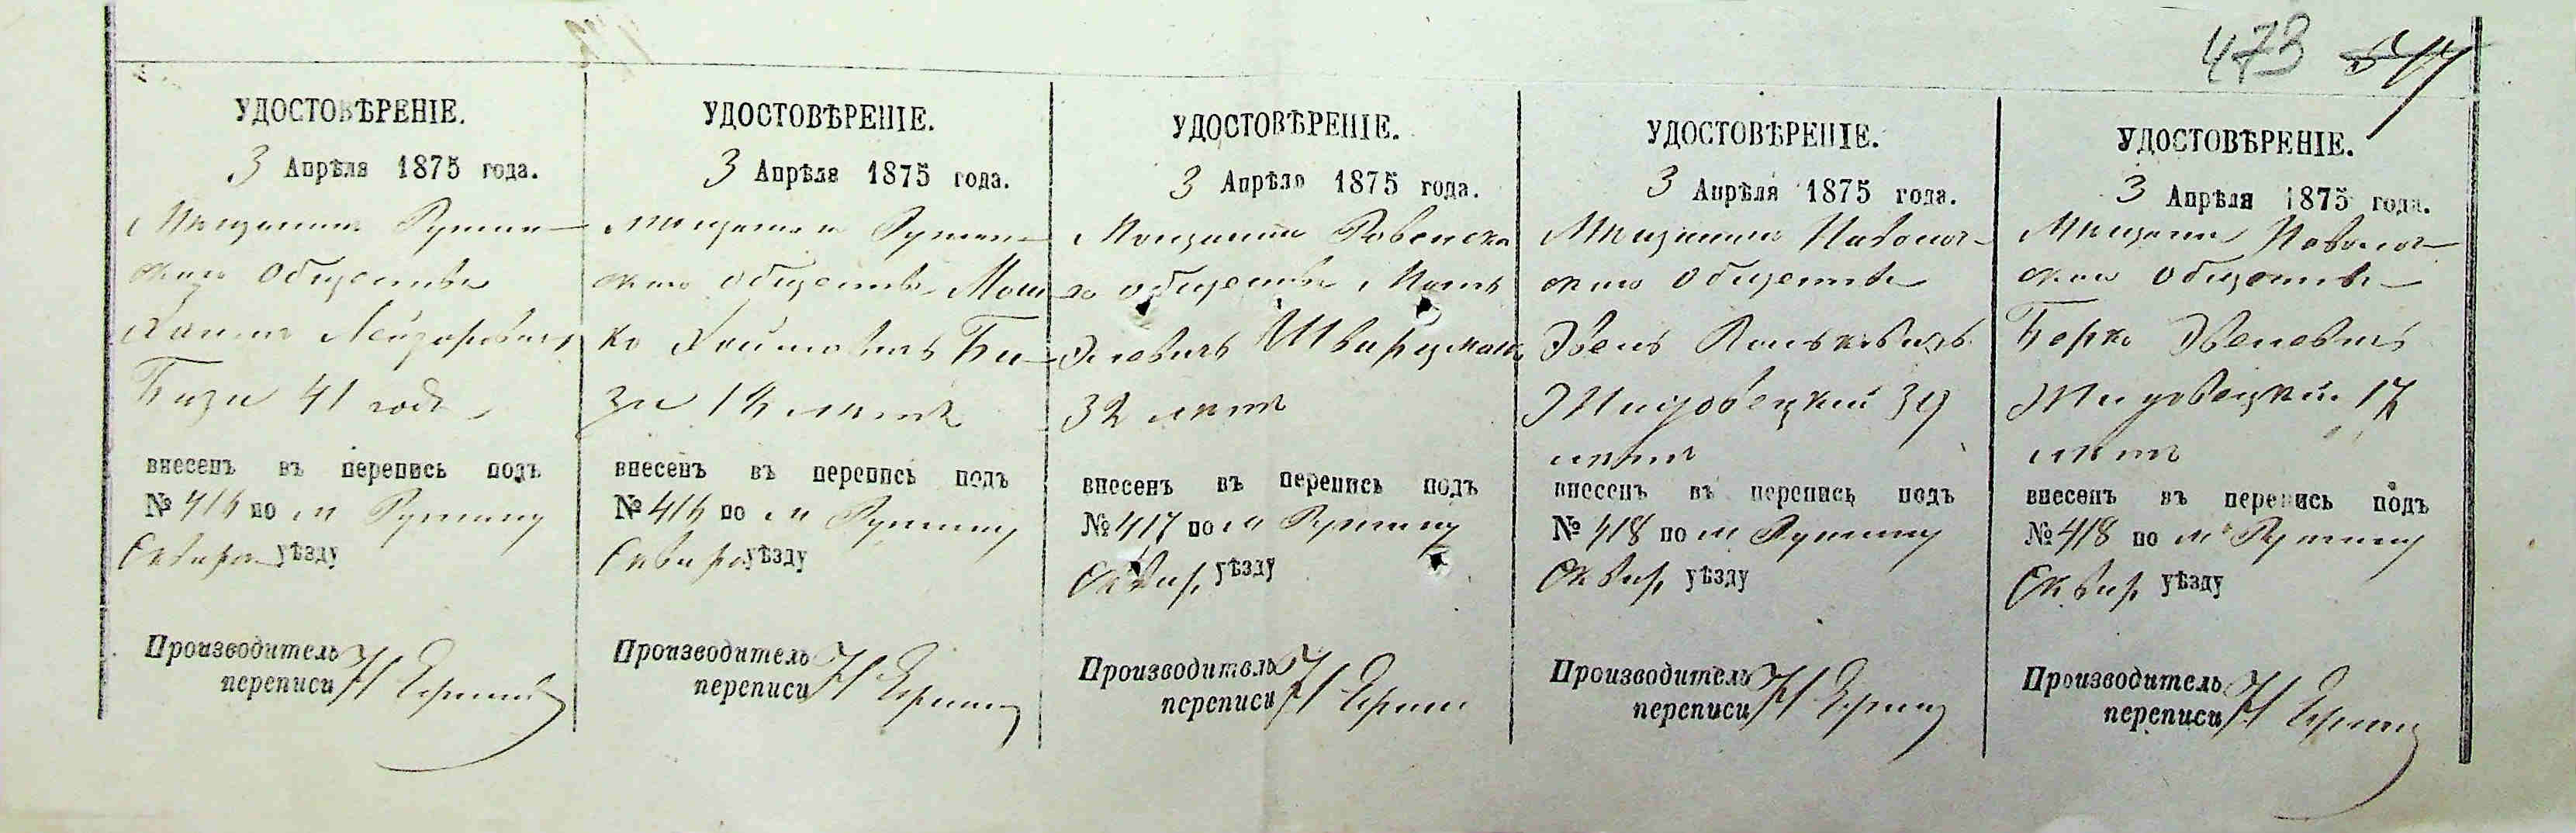 473 544
УДОСТОВѢРЕНІЕ.
3 Апрѣля 1875 года.
Мѣщанинъ Ружин-
скаго общества
Хаимъ Лейзеровичъ
Бизи 41 годъ
внесенъ въ перепись подъ
№ 416 по м Ружину
Сквир уѣзду
Производитель
переписи Н
УДОСТОВѢРЕНІЕ.
3 Апрѣля 1875 года.
Мѣщанинъ Ружин-
скаго общества Мош-
ко Хаимовичъ Би-
зи лѣтъ
внесенъ въ перепись подъ
№ 416 по м Ружину
Сквир уѣзду
Производитель
переписи Н
УДОСТОВѢРЕНІЕ.
3 Апрѣля 1875 года.
Мѣщанинъ Ровенска
го общества
Элевичъ Шварцманъ
32 лѣтъ
внесенъ въ перепись подъ
№ 417 по м Ружину
Сквир. уѣзду
Производитель
переписи Н
УДОСТОВѢРЕНІЕ.
3 Апрѣля 1875 года.
Мѣщанинъ Паволоч-
скаго общества
Эвель
39
лѣтъ
внесенъ въ перепись подъ
№ 418 по м Ружину
Сквир. уѣзду
Производитель
переписи Н
УДОСТОВѢРЕНІЕ.
3 Апрѣля 1875 года.
Мѣщанинъ Паволоч-
скаго общества
Берко Эвелевичъ
17
лѣтъ
внесенъ въ перепись подъ
№ 418 по м Ружину
Сквир. уѣзду
Производитель
переписи Н